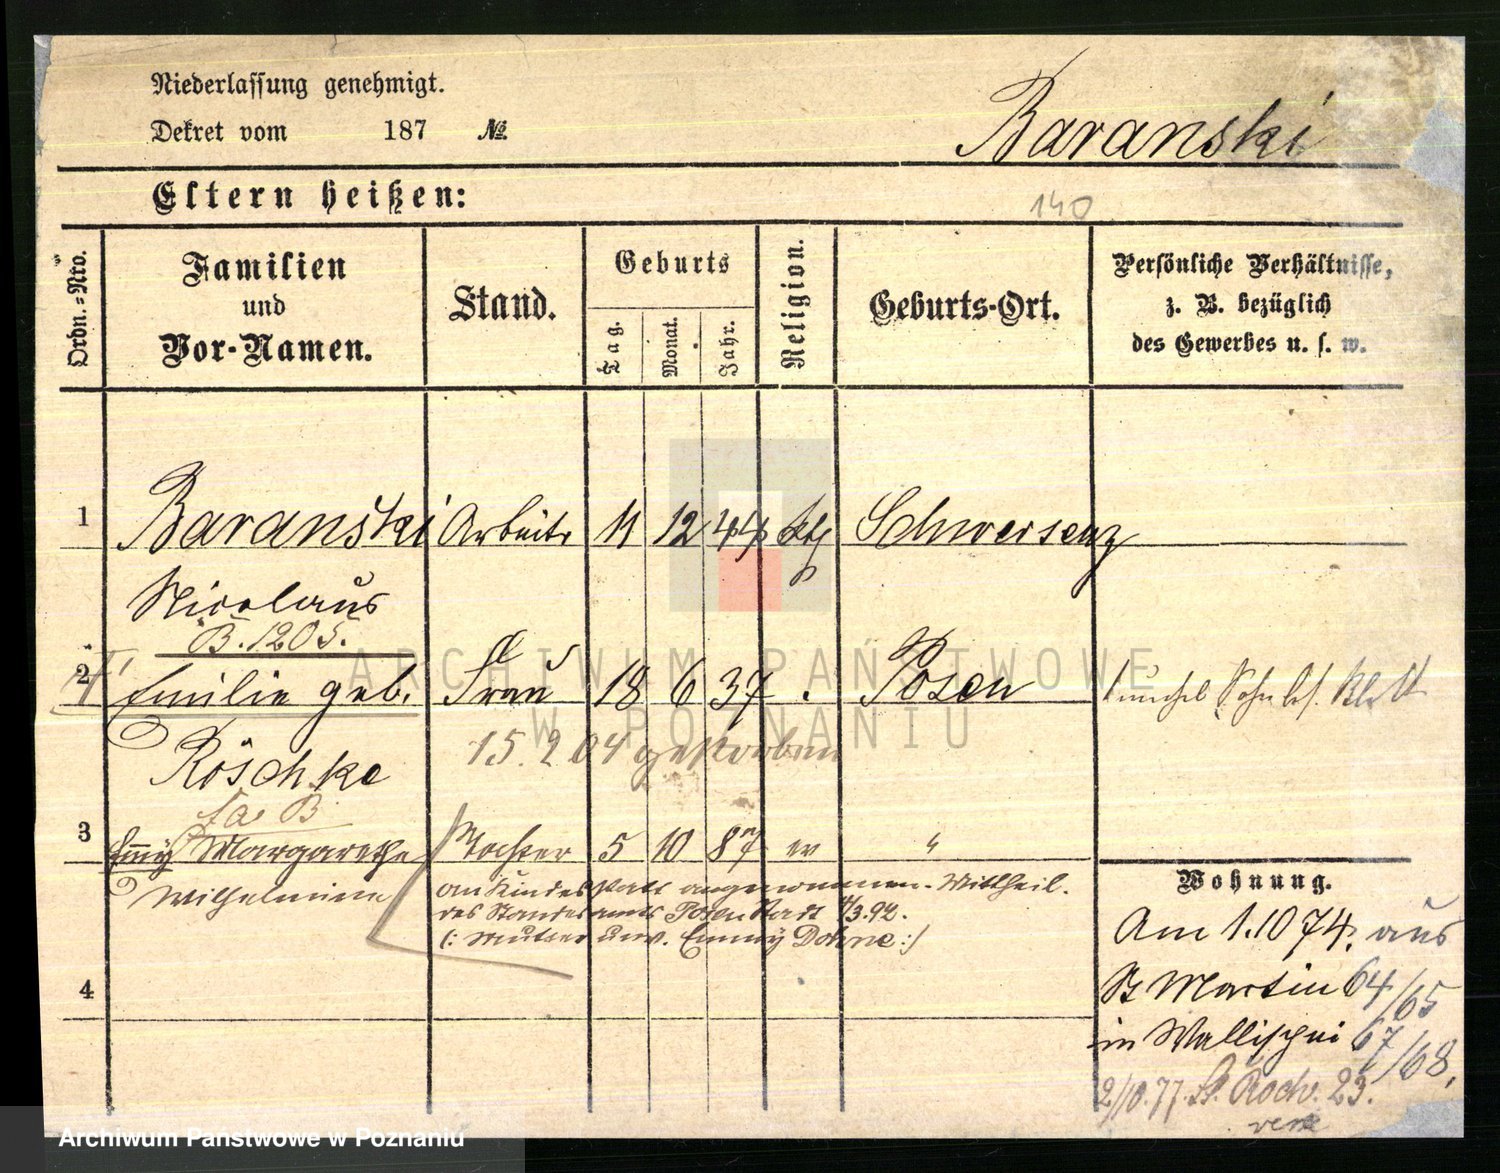 Niederlassung genehmigt.
Dekret vom 187 №
Baranski
Eltern heißen:
140
Ordn.=Nro.
Familien
und
Vor-Namen.
Stand.
Geburts
Tag.
Monat.
Jahr.
Religion.
Geburts-Ort.
Persönliche Verhältnisse,
z. B. bezüglich
des Gewerbes u. s. w.
1 Baranski Arbeiter 11 12 44 kth Schwersenz
Nicolaus
B. 1205.
2 Emilie geb. Frau 18 6 37 Posen
Röschke
15. 2 04 gestorben
3 Emmy Margarethe Tochter 5 10 87 ev "
Wilhelmine
an Kindesstatt angenommen. Mittheil.
des Standesamts Posen Stadt /3.92.
(: Mutter unv. Emmy Dohne :)
4
Wohnung.
Am 1.10 74. aus
St Martin 64/65
in Wallischei 67/68.
2/10.77. St. Roch. 23.
ARCHIWUM PAŃSTWOWE
W POZNANIU
Archiwum Państwowe w Poznaniu